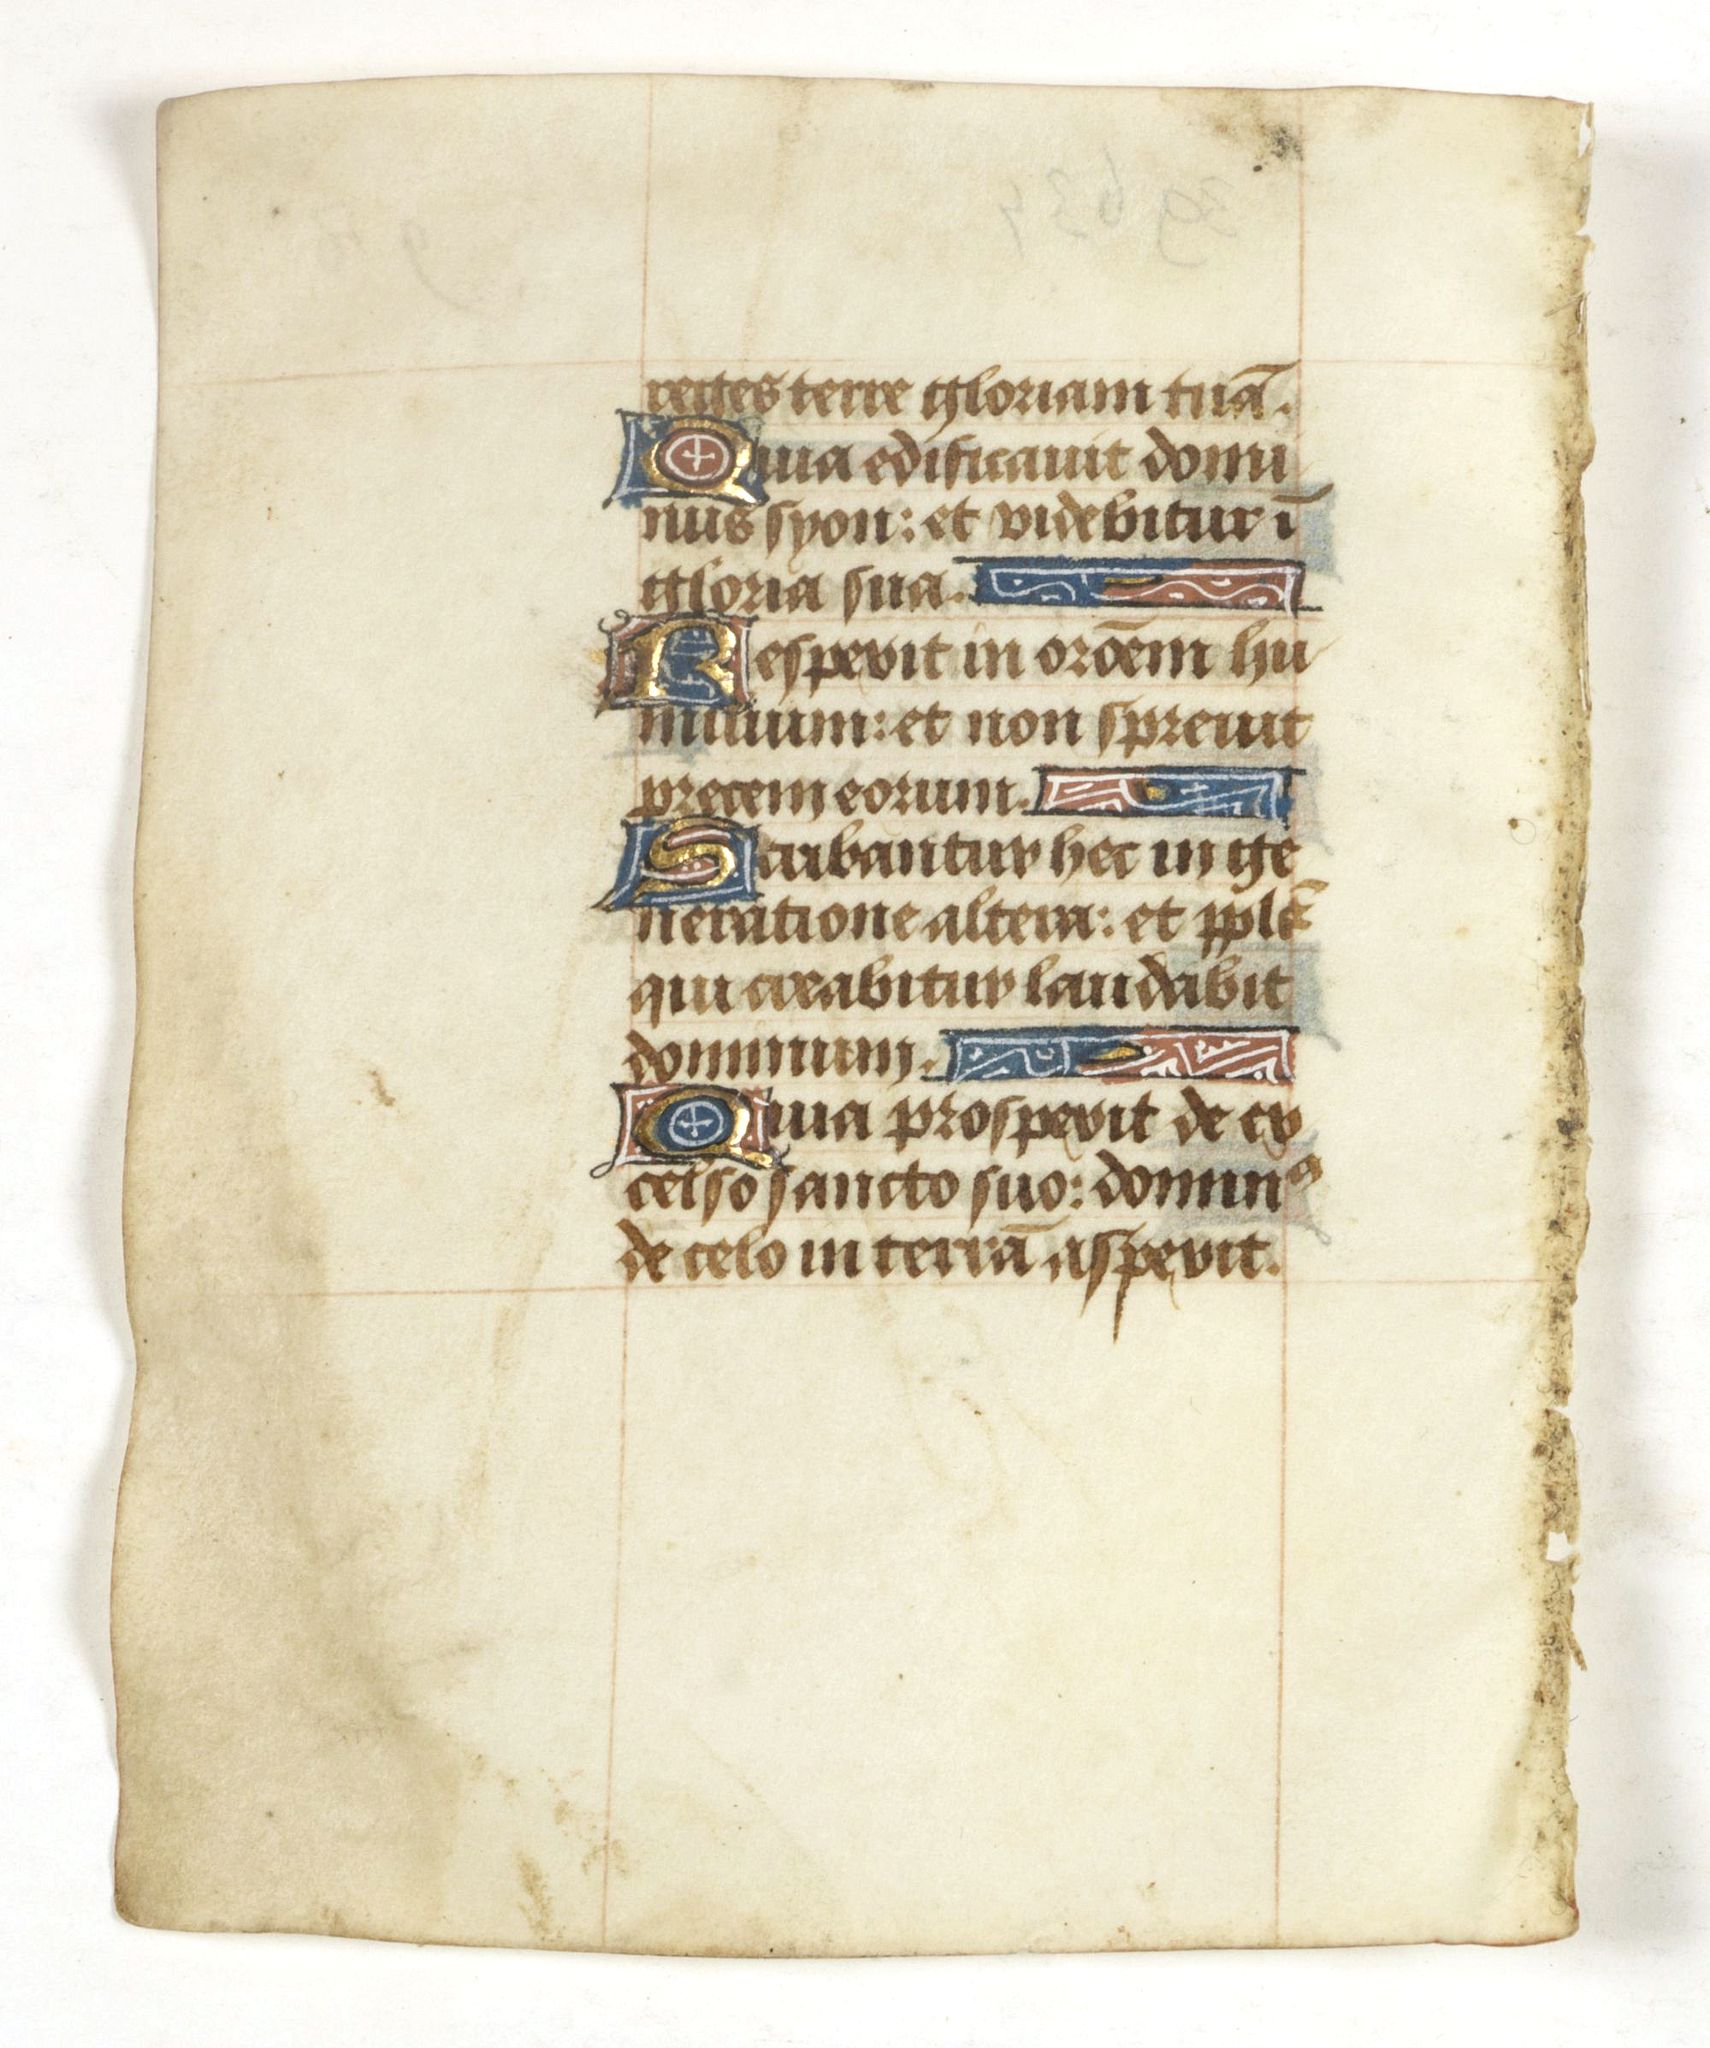 reges terre gloriam tuā.
Quia edificavit domi
nus syon: et videbitur ī
gloria sua.
Respexit in orōem hu
milium: et non sprevit
precem eorum.
Scribantur hec in ge
neratione altera: et ppls̄
qui creabitur laudabit
dominum.
Quia prospexit de ex
celso sancto suo: dominꝰ
de celo in terrā aspexit.